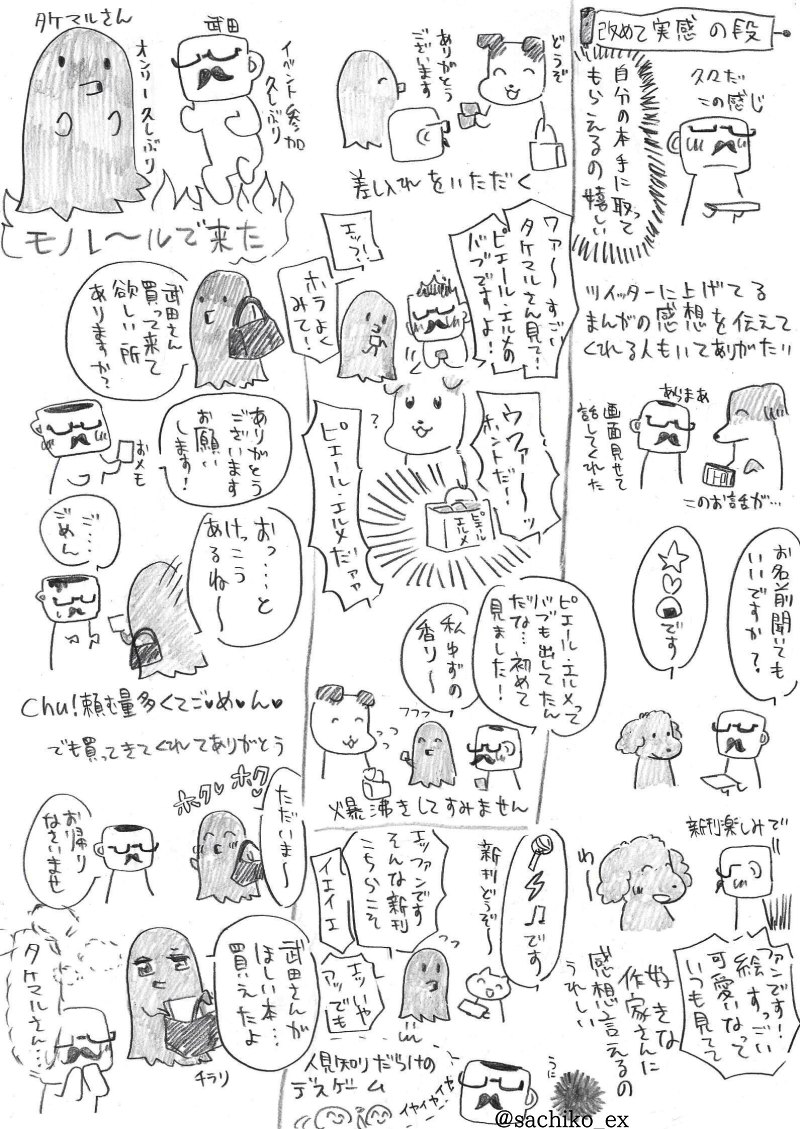 タケマルさん
オンリー久しぶり
武田
イベント参加
久しぶり
モノレ〜ルで来た
武田さん
買って来て
欲しい所
ありますか?
ありがとう
ございます
お願い
します!
おメモ
おっ…と
けっこう
あるね〜
ご…
ごめん
Chu!頼む量多くてご♥め♥ん♥
でも買ってきてくれてありがとう
ただいま〜
ホク
ホク
お帰り
なさいませ
武田さんが
ほしい本…
買えたよ
チラリ
タケマルさん…
どうぞ
ありがとう
ございます
差し入れをいただく
ワァ〜すごい
タケマルさん見て!
ピエール・エルメの
バブですよ!
エッ?!
ホラよく
みて!
?
ウワァ〜ッ
ホントだ!
ピエール・エルメだァァ
ピエール
エルメ
ピエール・エルメって
バブも出してたん
だな…初めて
見ました!
私ゆずの
香り〜
フフフ
爆沸きしてすみません
です
新刊どうぞ〜
エッファンです
そんな新刊
こちらこそ
イエイエ
エッいや
アッでも
人見知りだらけの
デスゲーム
イヤイヤイヤ
うに
改めて実感の段
久々だ
この感じ
自分の本手に取って
もらえるの嬉しい
ツイッターに上げてる
まんがの感想を伝えて
くれる人もいてありがたい
あらまあ
画面見せて
話してくれた
このお話が…
お名前聞いても
いいですか?
です
新刊楽しみで
わ〜
ファンです!
絵すっごい
可愛いなって
いつも見てて
好きな
作家さんに
感想言えるの
うれしい
@sachiko_ex